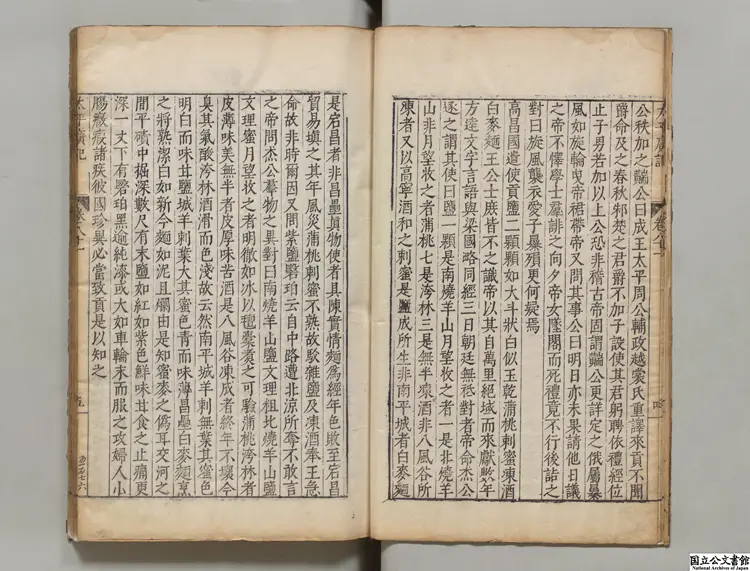 太平廣記
卷八十一
公秩加之䚹公曰成王太平周公輔政越裳氏重譯來貢不聞
爵命及之春秋邾楚之君爵不加子設使其君躬聘依禮經位
止子男若加以上公恐非稽古帝固謂䚹公更詳定之俄屬暴
風如旋輪曳帝裙帶帝又問其事公曰明日亦未果請他日議
之帝不懌學士羣誹之向夕帝女墜閣而死禮竟不行後詰之
對曰旋風襲衣愛子暴殞更何疑焉
高昌國遣使貢鹽二顆顆如大斗狀白似玉乾蒲桃刺蜜凍酒
白麥麵王公士庶皆不之識帝以其自萬里絕域而來獻數年
方達文字言語與梁國略同經三日朝廷無祗對者帝命杰公
迓之謂其使曰鹽一顆是南燒羊山月望收之者一是北燒羊
山非月望收之者蒲桃七是洿林三是無半凍酒非八風谷所
凍者又以高寧酒和之刺蜜是鹽城所生非南平城者白麥麵
是宕昌者非昌壘真物使者具陳實情麵為經年色敗至宕昌
貿易填之其年風災蒲桃刺蜜不熟故駮雜鹽及凍酒奉王急
命故非時爾因又問紫鹽瑿珀云自中路遭北涼所奪不敢言
之帝問杰公羣物之異對曰南燒羊山鹽文理粗北燒羊山鹽
文理蜜月望收之者明徹如冰以氈橐煮之可驗蒲桃洿林者
皮薄味美無半者皮厚味苦酒是八風谷凍成者終年不壞今
臭其氣酸洿林酒滑而色淺故云然南平城羊刺無葉其蜜色
明白而味甘鹽城羊刺葉大其蜜色青而味薄昌壘白麥麵烹
之將熟潔白如新今麵如泥且爛由是知蜜麥之偽耳交河之
間平磧中掘深數尺有末鹽如紅如紫色鮮味甘食之止痛更
深一丈下有瑿珀黑逾純漆或大如車輪末而服之攻婦人小
腸癥瘕諸疾彼國珍異必當致貢是以知之
太平廣記
卷八十一
五
国立公文書館
National Archives of Japan